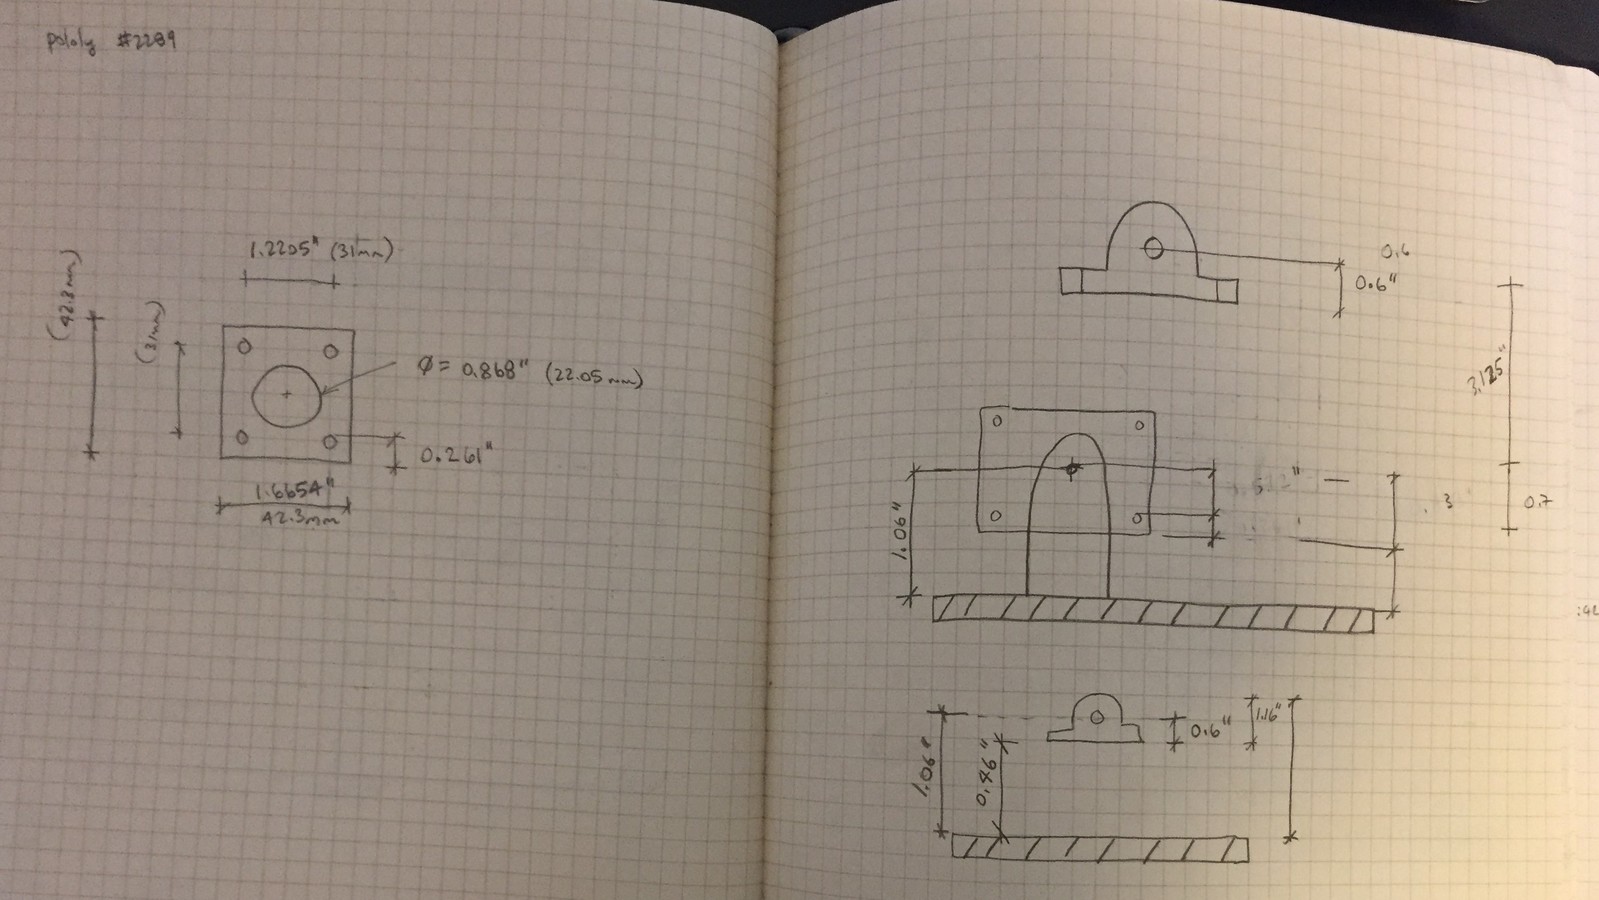 pololy #2289
1.2205" (31mm)
(42.3mm)
(31mm)
Ø= 0.868" (22.05mm)
0.261"
1.6654"
42.3mm
0.6
0.6"
3.125"
1.06"
.3
0.7
0.6"
1.16"
1.06"
0.46"